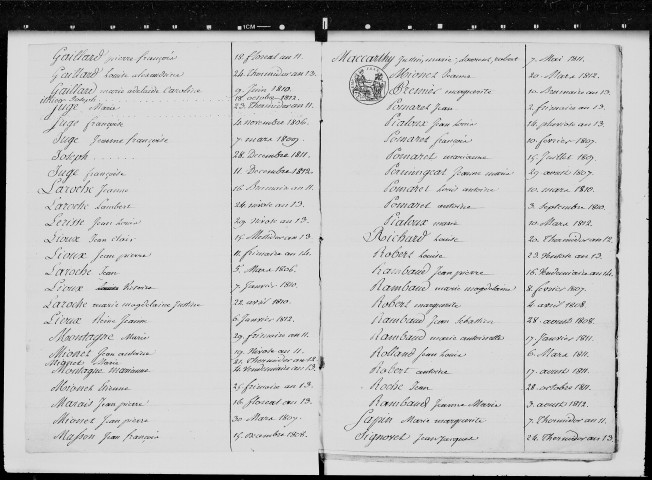 Gaillard pierre françois 18. floreal an 11.
Gaillard Louise alexandrine 24. Thermidor an 13.
Gaillard marie adelaide Caroline 9. Juin 1810.
Joseph 18. octobre 1812.
Juge Marie 23. Thermidor an 11.
Juge françoise 4. novembre 1806.
Juge Jeanne françoise 7. mars 1809.
Joseph 28. Decembre 1811.
Juge françoise 11. Decembre 1812.
Laroche Jeanne 16. Brumaire an 11.
Laroche Lambert 24. nivose an 13.
Jean Louis 29. nivose an 13.
Lioux Jean Clair 15. Messidor an 13.
Lioux Jean pierre 11. frimaire an 14.
Laroche Jean 5. Mars 1806.
Lioux 7. Janvier 1810.
Laroche marie magdelaine Justine 22. avril 1810.
Lioux Jeanne 6. Janvier 1812.
Montagne Marie 29. frimaire an 11.
Mionet Jean antoine 19. Nivose an 11.
Mionet Marie 21. Thermidor an 12
Montagne marianne 4. Vendemiaire an 13.
Mionet Etienne 25. frimaire an 13.
Marais Jean pierre 16. floreal an 13.
Mionet Jean pierre 30. Mars 1807.
Masson Jean françois 15. Decembre 1808.
Maccarthy Justin, marie, Laurent, robert 7. Mai 1811.
Mionet Jeanne 20. Mars 1812.
marguerite 10. Brumaire an 13.
Pomaret Jean 2. frimaire an 13.
Pialoux Jean Louis 14. pluviose an 13.
Pomaret françois 10. fevrier 1807.
Pomaret marianne 15. Juillet 1807.
Jeanne marie 29. avout 1807.
Pomaret Louis antoine 10. mars 1810.
Pomaret antoine 3. Septembre 1810.
Pialoux marie 10. Mars 1812.
Richard Louise 20. Thermidor an 12.
Robert Louise 23. Ventose an 13.
Rambaud Jean pierre 16. Vendemiaire an 14.
Rambaud marie magdelaine 8. fevrier 1807.
Robert marguerite 4. avril 1808
Rambaud Jean Sebastien 28. aout 1808.
Rambaud marie antoinette 17. Janvier 1811.
Rolland Jean Louis 6. Mars 1811.
Robert antoine 17. aout 1811.
Roche Jean 28. octobre 1811.
Rambaud Jeanne Marie 3. aout 1812.
Marie marguerite 7. Thermidor an 11.
Signoret Jean Jacques 24. Thermidor an 13.